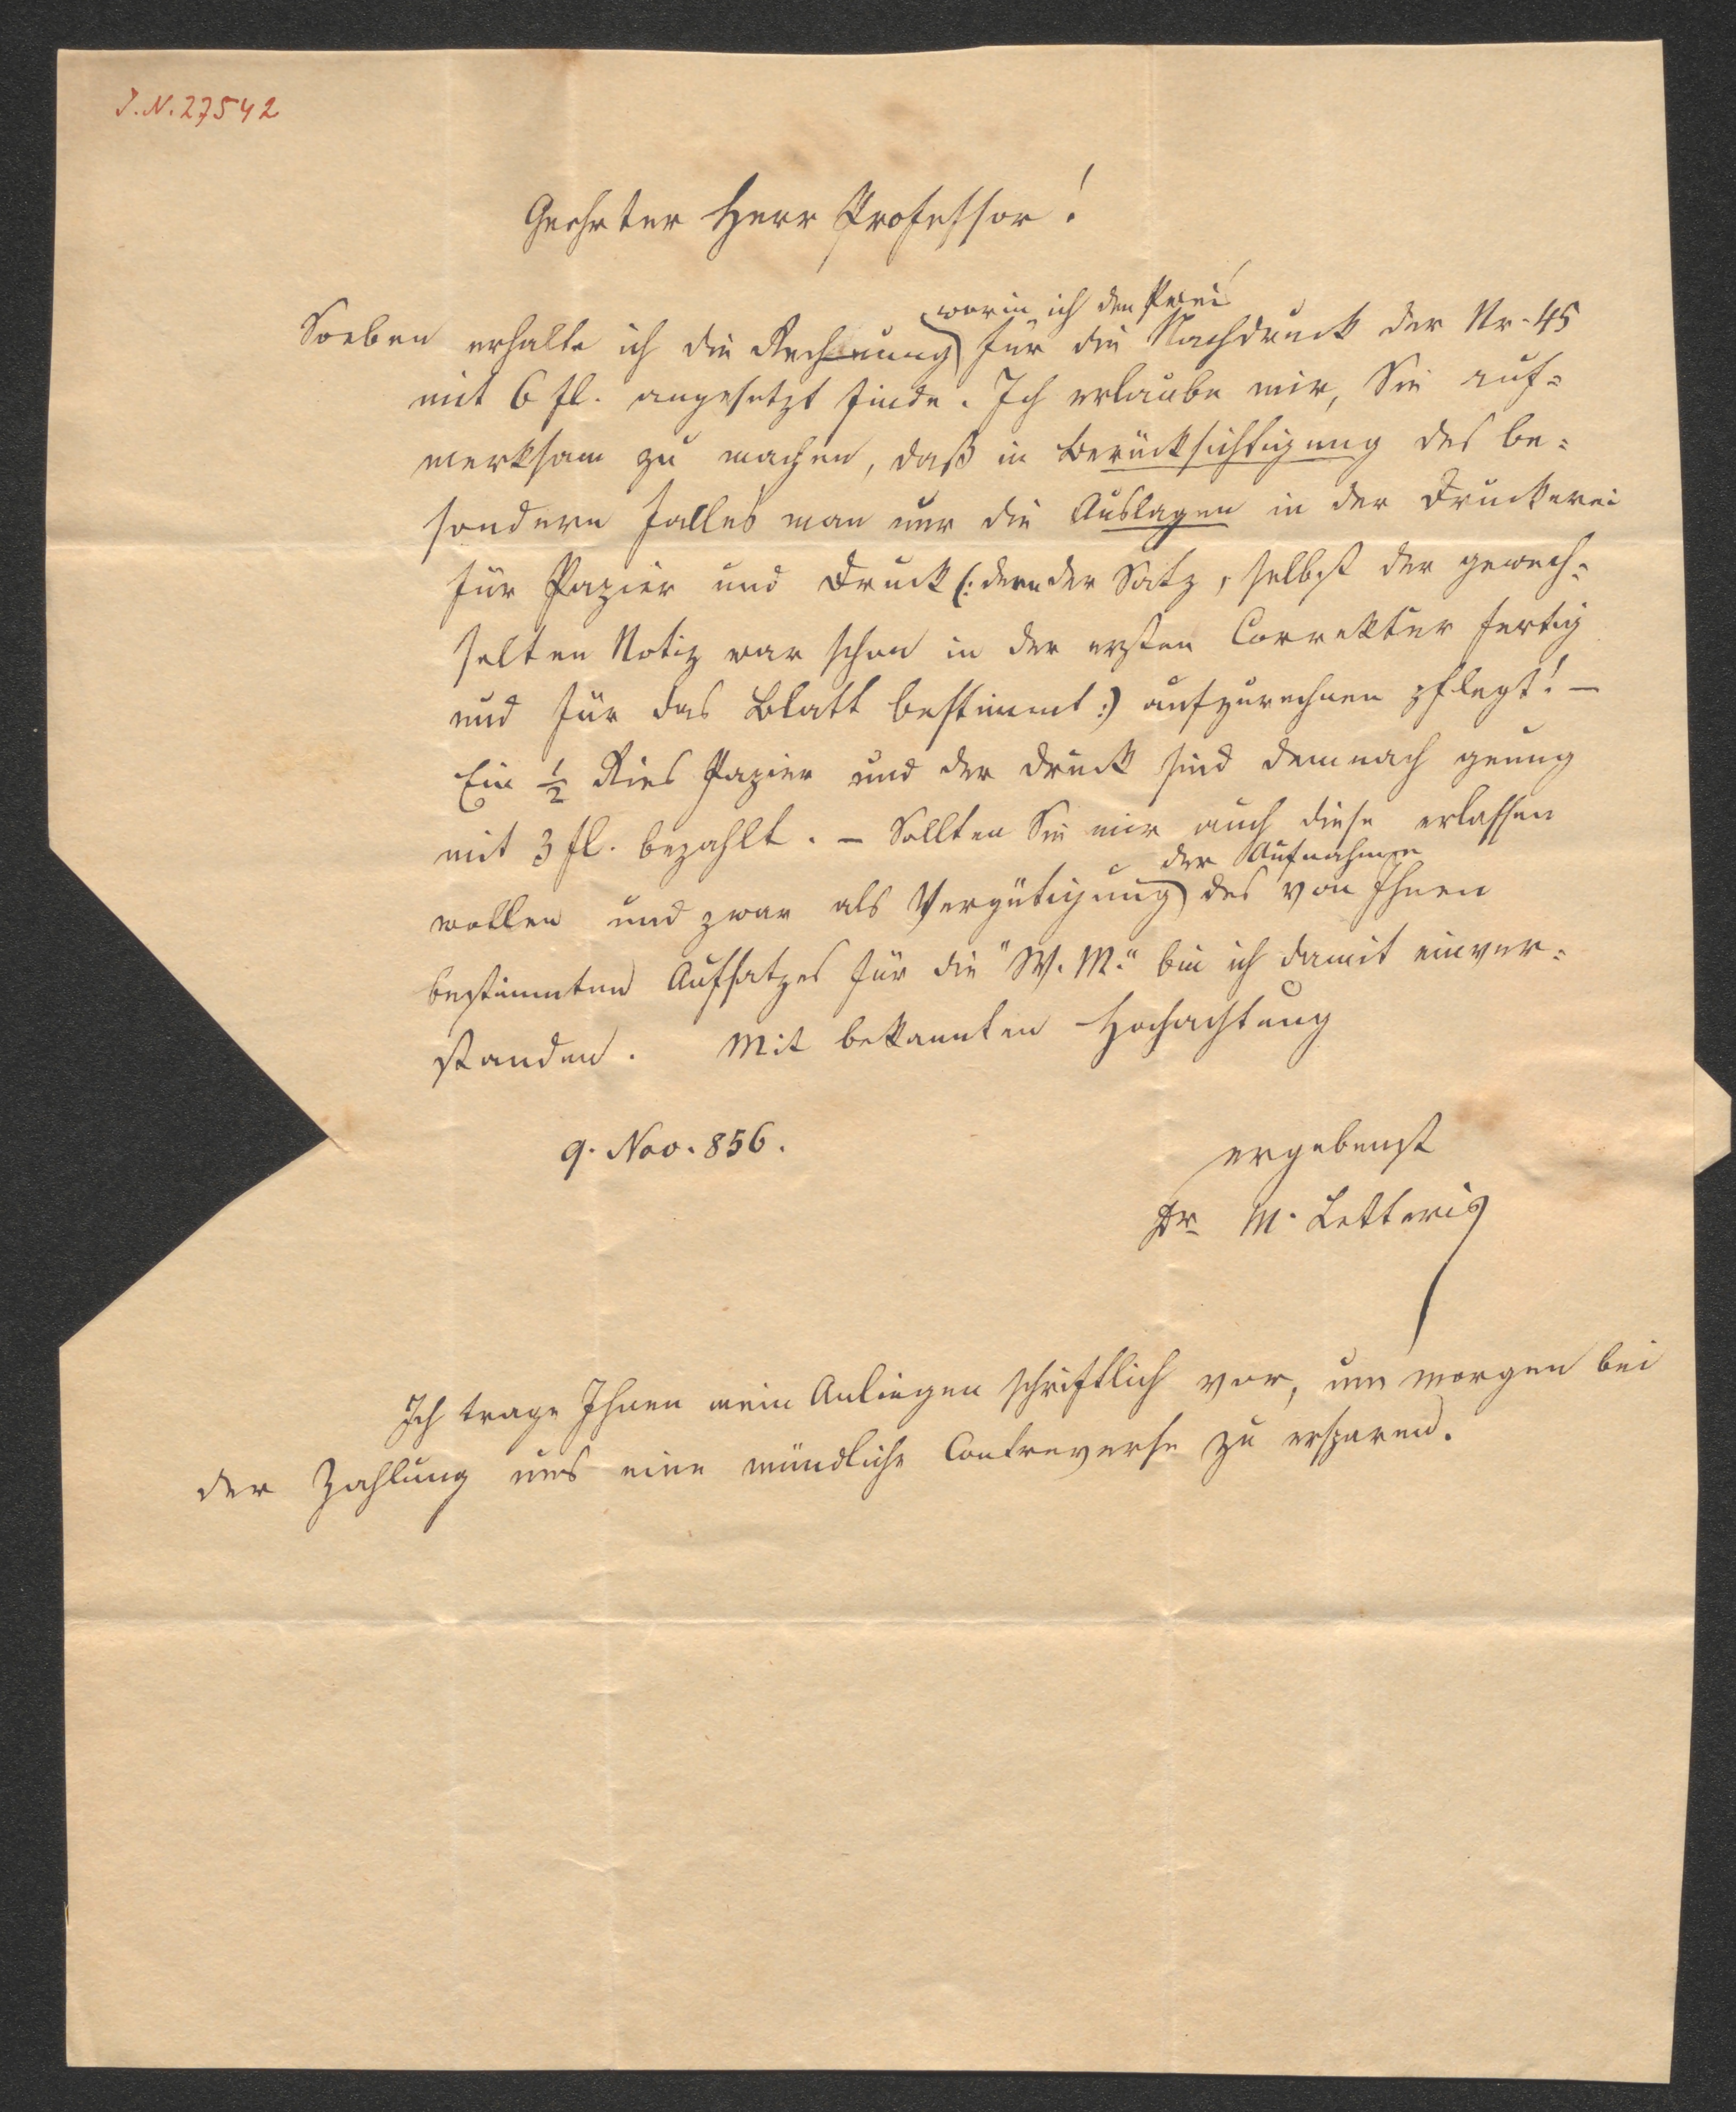 J.N. 27542
Geehrter Herr Professor!
worin ich den Preis
Soeben erhalte ich die Rechnung für die Nachdruck der Nr. 45
mit 6 fl. angesetzt finde. Ich erlaube mir, Sie auf=
merksam zu machen, daß in Berücksichtigung des be=
sondern Falles man nur die Auslagen in der Druckerei
für Papier und Druck (: denn der Satz, selbst der gewech=
selten Notiz war schon in der ersten Correktur fertig
und für das Blatt bestimmt :) aufzurechnen pflegt! –
Ein ½ Ries Papier und der Druck sind demnach genug
mit 3 fl. bezahlt. – Sollten Sie mir auch diese erlassen
der Aufnahme
wollen und zwar als Vergütigung des von Ihnen
bestimmten Aufsatzes für die "W. M." bin ich damit einver=
standen. Mit bekannten Hochachtung
9. Nov. 856.
ergebenst
Dr M. Letteris
Ich trage Ihnen mein Anliegen schriftlich vor, um morgen bei
der Zahlung uns eine mündliche Contreverse zu ersparen.